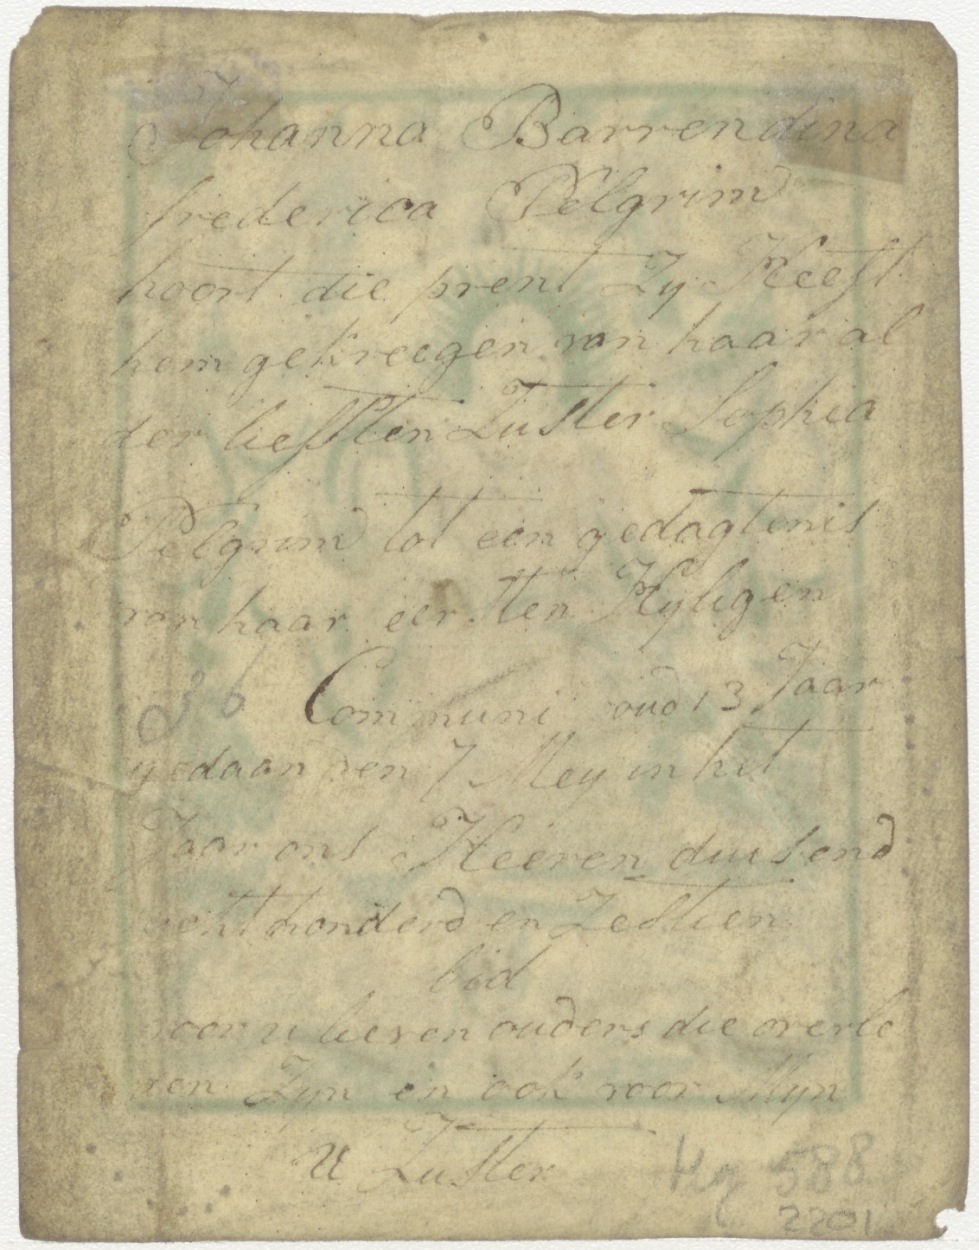 Johanna Barrendina
frederica Pelgrim
hoort die prent Zy Heeft
hem gekreegen van haar al
der liefsten Zuster Sophia
Pelgrim tot een gedagtenis
van haar eersten Hyligen
Communi oud 13 Jaar
gedaan den 7 Mey in het
Jaar ons Heeren duisend
acht honderd en Zestien
bid
voor u lieven ouders die overle
den Zyn en ook voor Myn
U Zuster
Hg 588
2201